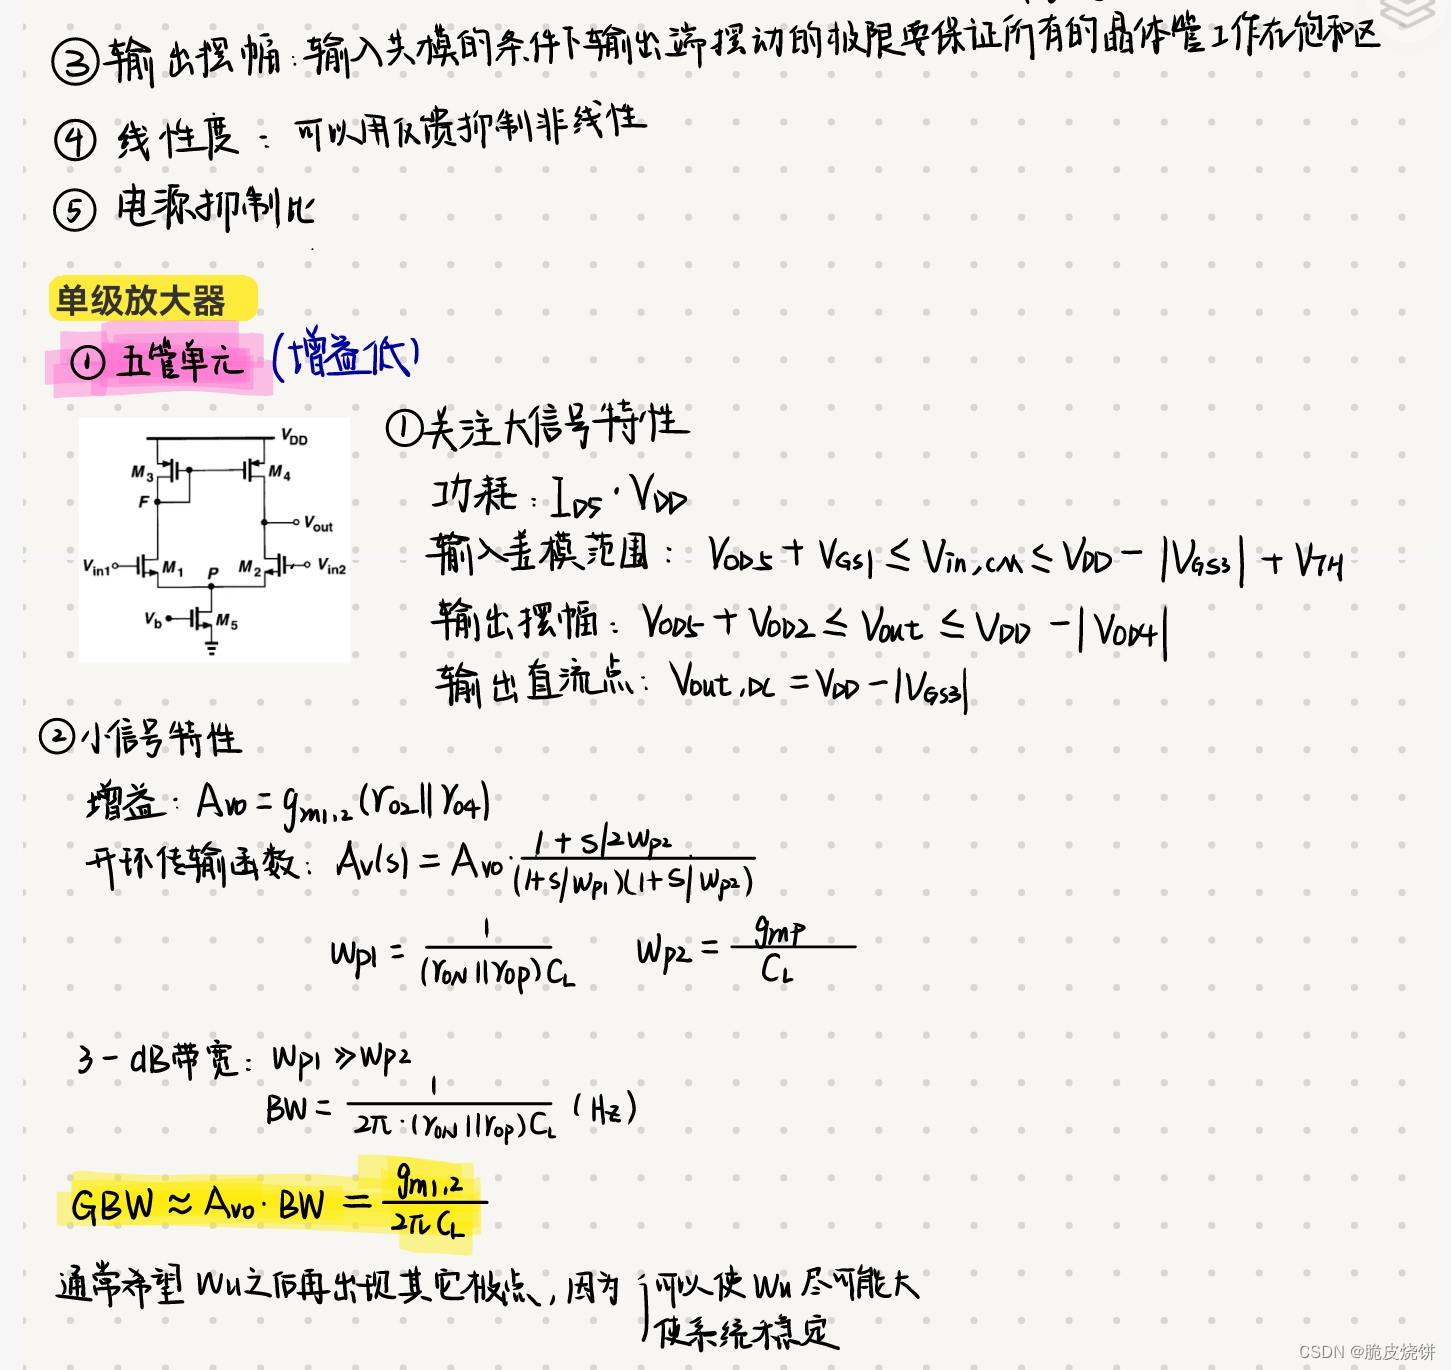 ③输出摆幅:输入共模的条件下输出端摆动的极限要保证所有的晶体管工作在饱和区
④ 线性度:可以用反馈抑制非线性
⑤ 电源抑制比
单级放大器
① 五管单元 (增益低)
①关注大信号特性
VDD
M3 M4
F
Vout
Vin1 M1 P M2 Vin2
Vb M5
功耗:IDS·VDD
输入共模范围:VOD5 + VGS1 ≤ Vin,CM ≤ VDD - |VGS3| + VTH
输出摆幅:VOD5 + VOD2 ≤ Vout ≤ VDD - |VOD4|
输出直流点:Vout,DC = VDD - |VGS3|
②小信号特性
增益:Av0 = gm1,2 (ro2||ro4)
开环传输函数:Av(s) = Av0 · (1+s/2wp2) / ((1+s/wp1)(1+s/wp2))
wp1 = 1 / ((roN||roP)CL) wp2 = gmP / CL
3-dB带宽:wp1 ≫ wp2
BW = 1 / (2π·(roN||roP)CL) (Hz)
GBW ≈ Av0·BW = gm1,2 / (2πCL)
通常希望 wu之后再出现其它极点,因为 {可以使wu尽可能大
使系统稳定
CSDN @脆皮烧饼